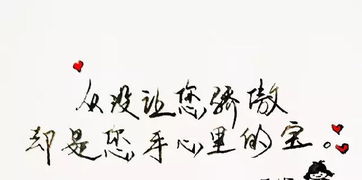 从没让您骄傲
却是您手心里的宝。